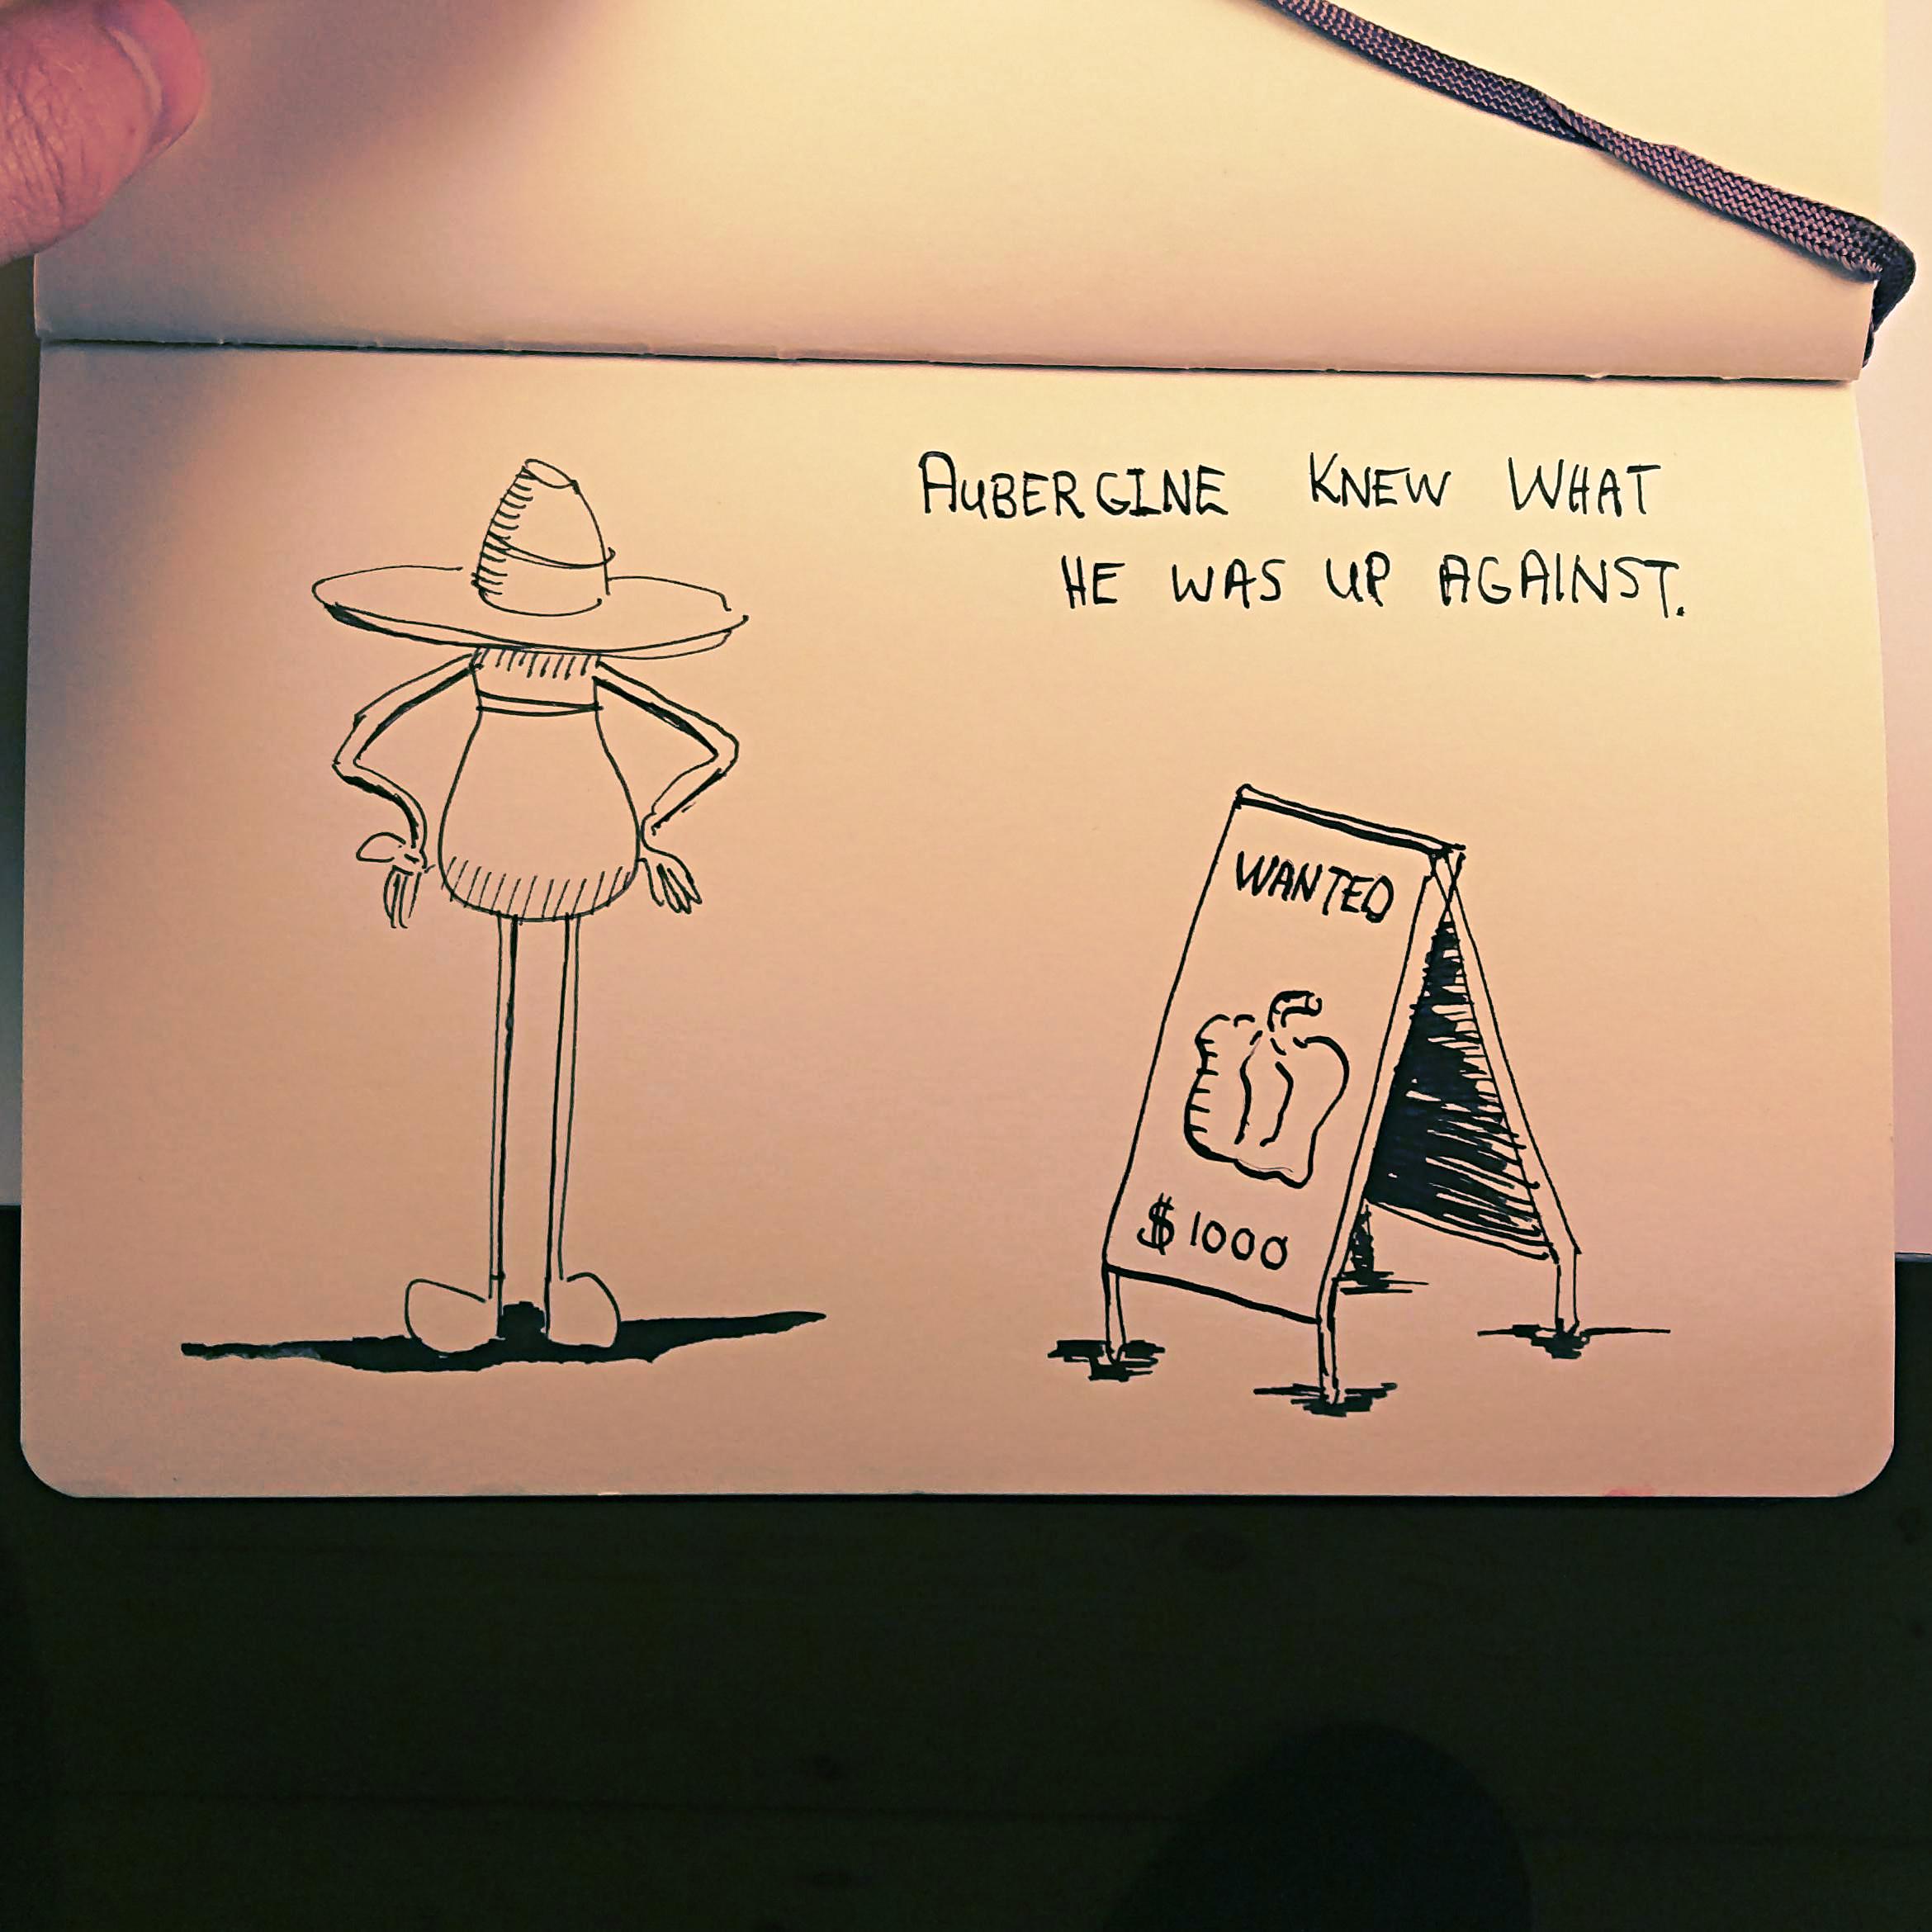 AUBERGINE KNEW WHAT
HE WAS UP AGAINST.
WANTED
$1000